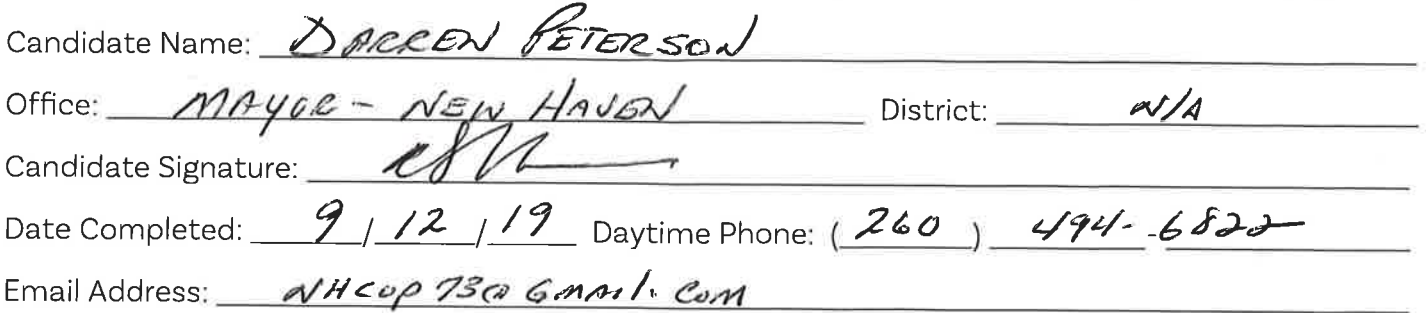 Candidate Name: DARREN PETERSON
Office: MAYOR - NEW HAVEN District: N/A
Candidate Signature:
Date Completed: 9 / 12 / 19 Daytime Phone: (260) 494--6822
Email Address: NHCOP73@Gmail.com